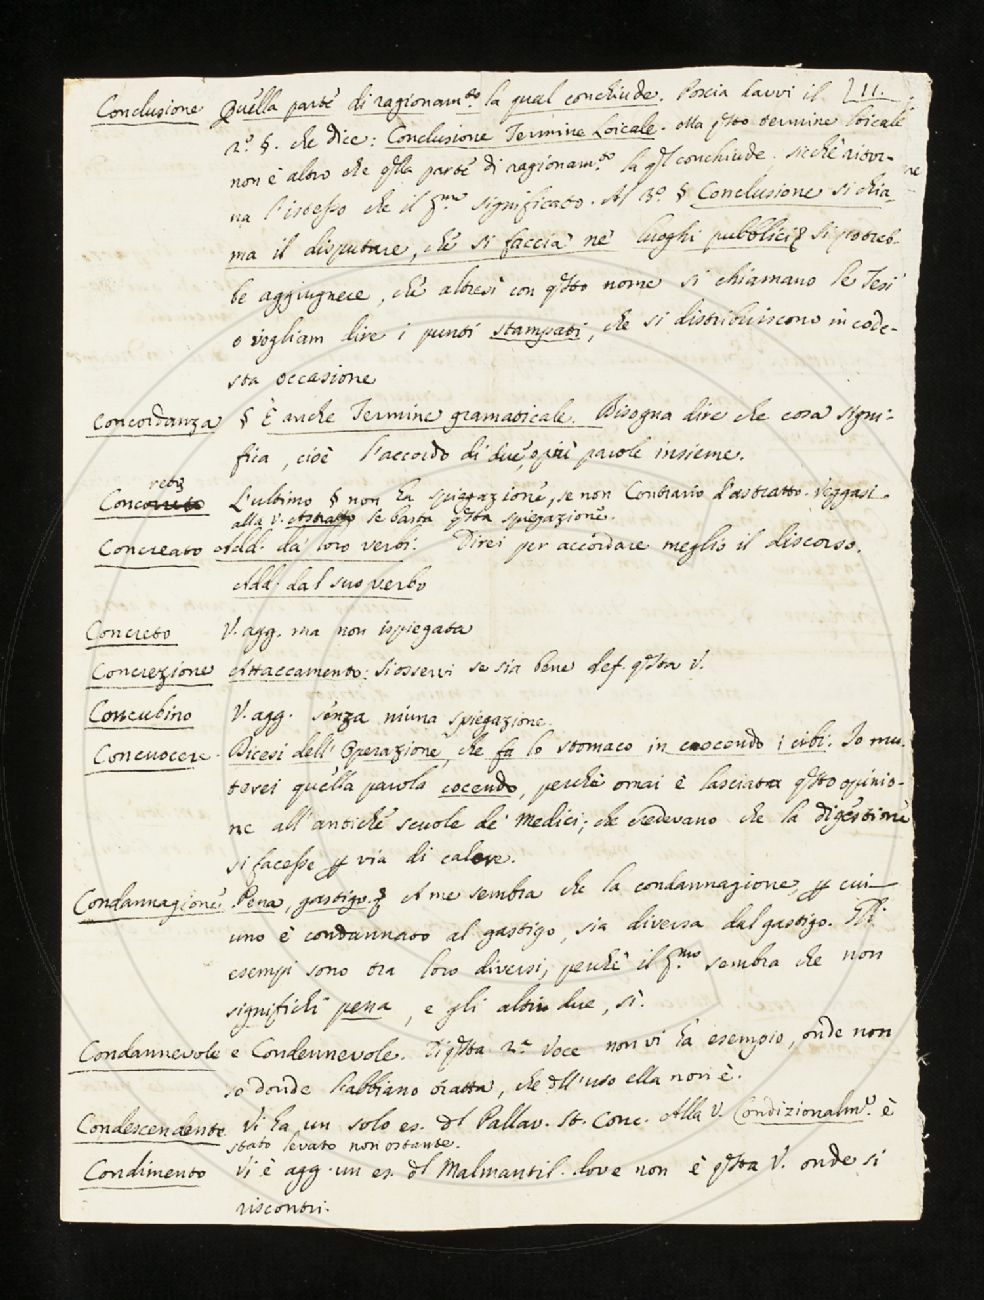 Conclusione Quella parte di ragionam.to la qual conchiude. Poscia davvi il L11.
2.° §. che dice: Conclusione Termine Loicale. Ma q.sto termine loicale
non è altro che q.lla parte di ragionam.to la q.l conchiude; sicchè ritor-
na l'istesso che il p.mo significato. Al 3.° § Conclusione si chia-
ma il disputare, che si faccia ne' luoghi pubblici si potreb-
be aggiugnere, che altresì con q.sto nome si chiamano le Tesi
o vogliam dire i punti stampati, che si distribuiscono in code-
sta occasione
Concordanza § È anche Termine gramaticale. Bisogna dire che cosa signi-
fica, cioè l'accordo di due, o più parole insieme.
Concreto L'ultimo § non ha spiegazione, se non Contrario d'astratto. Veggasi
alla V. Astratto se basta q.sta spiegazione.
Concreato Add. da' loro verbi. Direi per accordare meglio il discorso.
Add. dal suo verbo
Concreto V. agg. ma non ispiegata
Concrezione Attaccamento. Si osservi se sia bene def. q.sta V.
Concubino V. agg. senza niuna spiegazione.
Concuocere. Dicesi dell'Operazione, che fa lo stomaco in cuocendo i cibi. Io mu-
terei quella parola cocendo, perchè omai è lasciata q.sto opinio-
ne all'antiche scuole de' Medici; che credevano che la digestione
si facesse p via di calore.
Condannagione Pena, gastigo. A me sembra che la condannagione, p cui
uno è condannato al gastigo, sia diversa dal gastigo. Gli
esempi sono tra loro diversi, perchè il p.mo sembra che non
significhi pena, e gli altri due, sì.
Condannevole e Condennevole. Di q.sta 2.a Voce non vi ha esempio, onde non
so donde l'abbiano tratta, che dll'uso ella non è.
Condescendente Vi ha un solo es. dl Pallav. St. Conc. Alla V. Condizionalm.e è
stato levato non ostante.
Condimento Vi è agg. un es. dl Malmantil. dove non è q.sta V. onde si
riscontri.